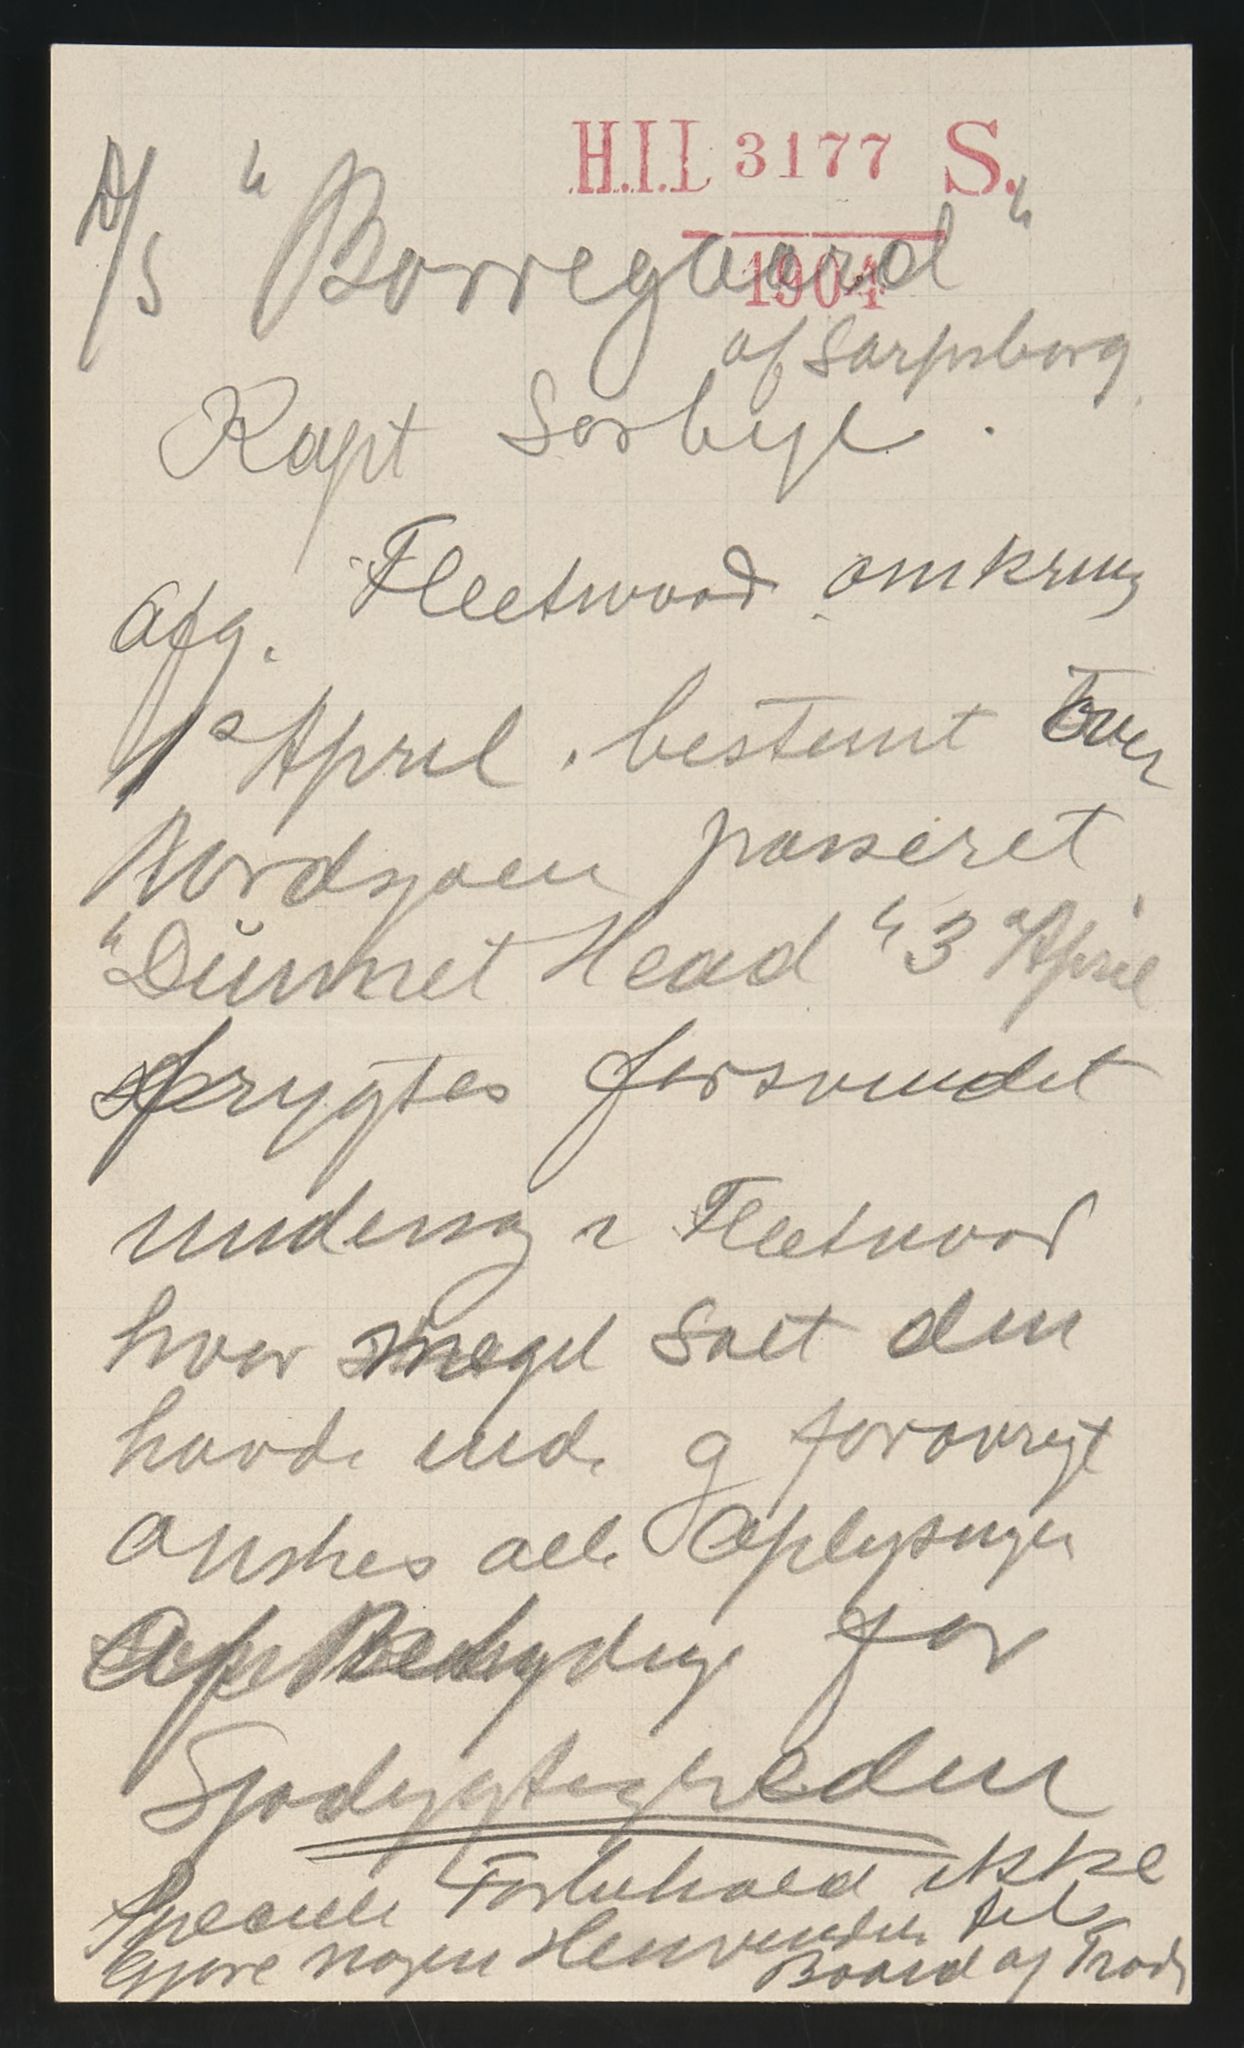 H.I.L 3177 S.
1904
D/S "Borregaard"
af Sarpsborg.
Kapt Sørbye.
Afg. Fleetwood omkring
1ste April. bestemt over
Nordsjøen passeret
"Dunnet Head" 3 April
frygtes forsvundet
undersøg i Fleetwood
hvor meget Salt den
havde inde og forøvrigt
ønskes alle Oplysninger
af Betydning for
Sjødygtigheden
Specielle Forbehold ikke
gjøre nogen Henvendelse til
Board of Trade